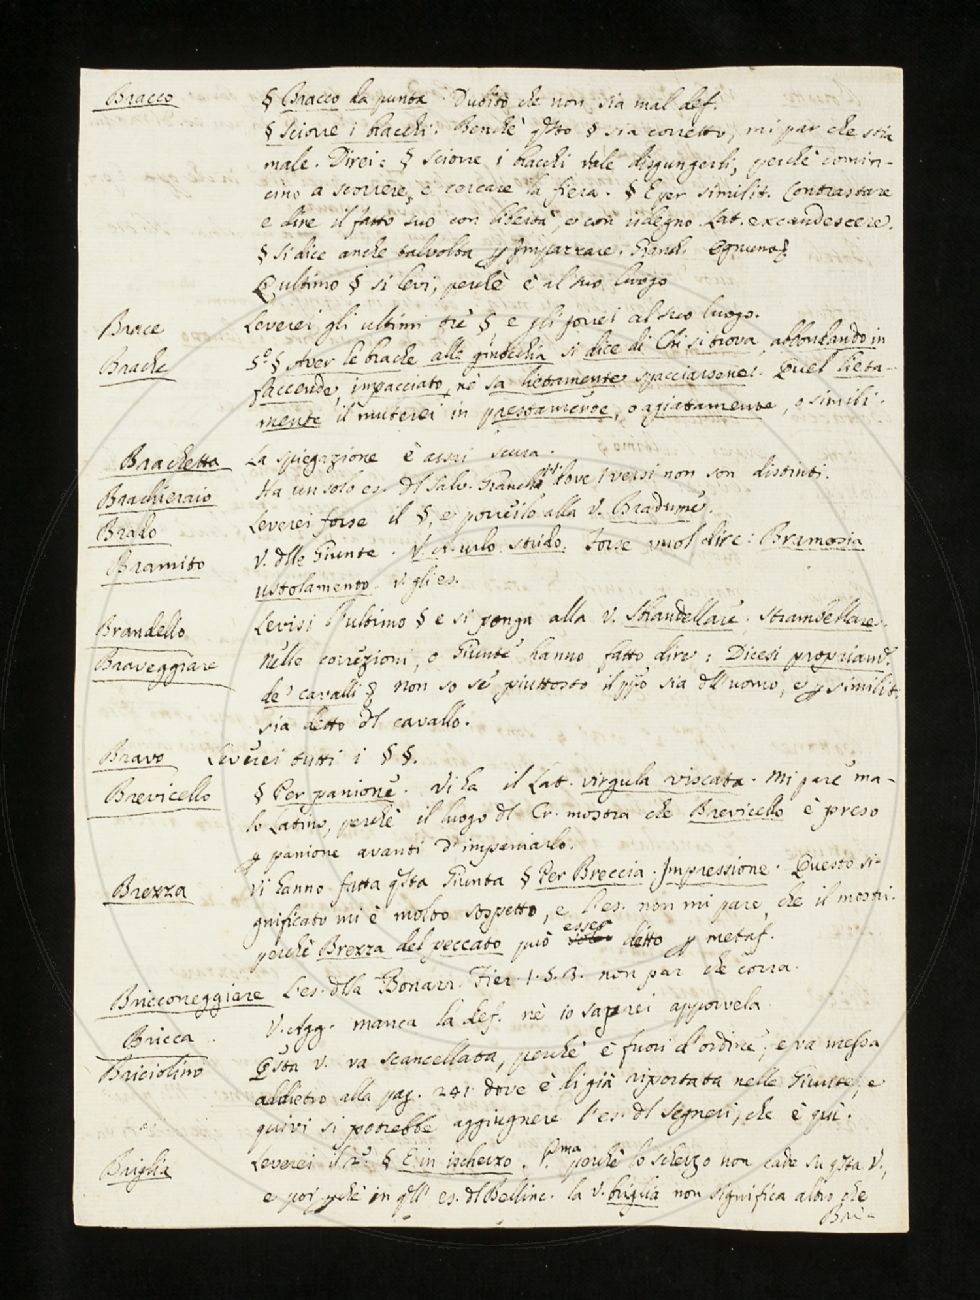 Bracco § Bracco da punta. Dubito che non sia mal def.
§ Sciorre i bracchi. Benchè qsto § sia corretto, mi par che stia
male. Direi: § Sciorre i bracchi vale disgungerli, perchè comin-
cino a scorrere, e cercare la fiera. § E per similit. Contrastare
e dire il fatto suo con libertà, e con isdegno Lat. excandescere.
§ Si dice anche talvolta p Impazzare. Franch.
Qultimo § si levi, perchè è al suo luogo
Brace Leverei gli ultimi trè § e gli porrei al suo luogo.
Brache 5.° § Aver le brache alle ginocchia si dice di Chi si trova, abbondando in
faccende, impacciato, nè sa liettamente spacciarsene. Quel lieta-
mente il muterei in prestamente, o agiatamente, o simili.
Brachetta La spiegazione è assai scura.
Brachieraio Ha un solo es. dl Salv. Granch. dove i versi non son distinti.
Brado Leverei forse il §, e porreilo alla V. Bradume.
Bramito V. dlle Giunte. V. et urlo. strido. Forse vuol dire: Bramosia
ustolamento. V. gli es.
Brandello Levisi l'ultimo § e si ponga alla V. Sbrandellare. Strambellare.
Braveggiare Nelle correzioni, o Giunte hanno fatto dire: Dicesi propriam.
de' cavalli § non so se piuttosto il ppio sia dll'uomo, e p similit.
sia detto dl cavallo.
Bravo Leverei tutti i § §.
Brevicello § Per panione. Vi ha il Lat. virgula viscata. Mi pare ma-
lo Latino, perchè il luogo dl Cr. mostra che Brevicello è preso
p panione avanti d'impaniarlo.
Brezza Vi hanno fatta qsta Giunta § Per Breccia. Impressione. Questo si-
gnificato mi è molto sospetto, e l'es. non mi pare, che il mostri.
perchè Brezza del peccato può esser detto p metaf.
Bricconeggiare L'es. dlla Bonarr. Fier. 1. 5. 3. non par che corra.
Bricca V. Agg. manca la def. nè io saprei apporvela
Briciolino Qsta V. va scancellata, perchè è fuori d'ordine, e va messa
addietro alla pag. 241 dove è di già riportata nelle Giunte, e
quivi si potrebbe aggiugnere l'es. dl Segneri, che è qui.
Briglia Leverei il 2.° § E in ischerzo. P.ma perchè lo scherzo non cade su qsta V.,
e poi pchè in qll' es. dl Bellinc. la V. briglia non significa altro che
Bri-